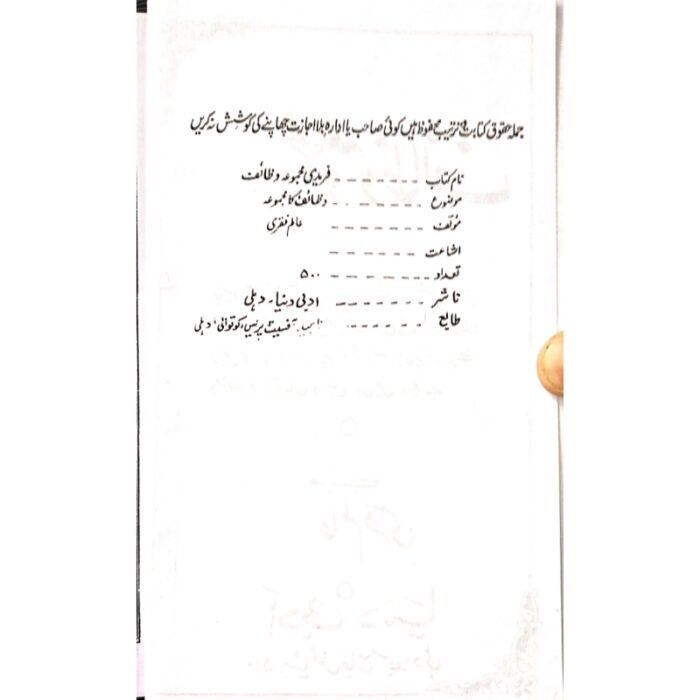 جملہ حقوق کتابت و ترتیب محفوظ ہیں کوئی صاحب یا ادارہ بلا اجازت چھاپنے کی کوشش نہ کریں
نام کتاب ------- فریدی مجموعہ وظائف
موضوع ------- وظائف کا مجموعہ
مؤلف ------- عالم فقری
اشاعت -------
تعداد ------- ۵۰۰
ناشر ------- ادبی دنیا، دہلی
طابع ------- آفسیٹ پریس، کوتوانی، دہلی
ادبی دنیا